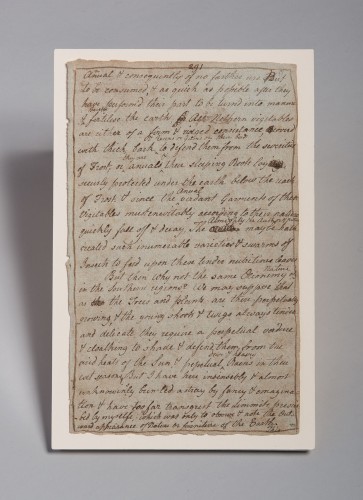 241
Annual & consequently of no farther use But
to be consumed, & as quick as possible after they
have performed their part to be turned into manure
& fertilise the earth
are either of a firm & consistence,
with thick bark to defend them from the severities
of Frost, or annuals whose sleeping Roots
securely protected under the earth below the
of Frost, & since the verdant Garments of these
Annual
Vegitables must inevitably according to their nature
quickly fall off & decay, She may have
created such innumerable varieties & swarms of
Insects to feed upon their tender nutritious leaves
But then why not the same Oeconomy of
Nature
in the Southern regions? We may suppose that
as the Trees and Shrubs, are there perpetualy
growing & the young shoots & twigs always tender
and delicate they require a perpetual verdure
& cloathing to shade & defend them from the
heats of the Sun, & perpetual Rains in
But I have here insensibly & almost
unknowinly been led astray by fancy & imagina
tion & have too far transgrest the limmits prescri
bed by myself, which was only to observe & note the Out
ward appearance of Nature or furniture of the Earth